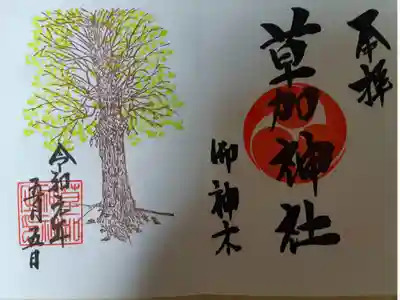 奉拝
草加神社
御神木
令和元年
五月五日